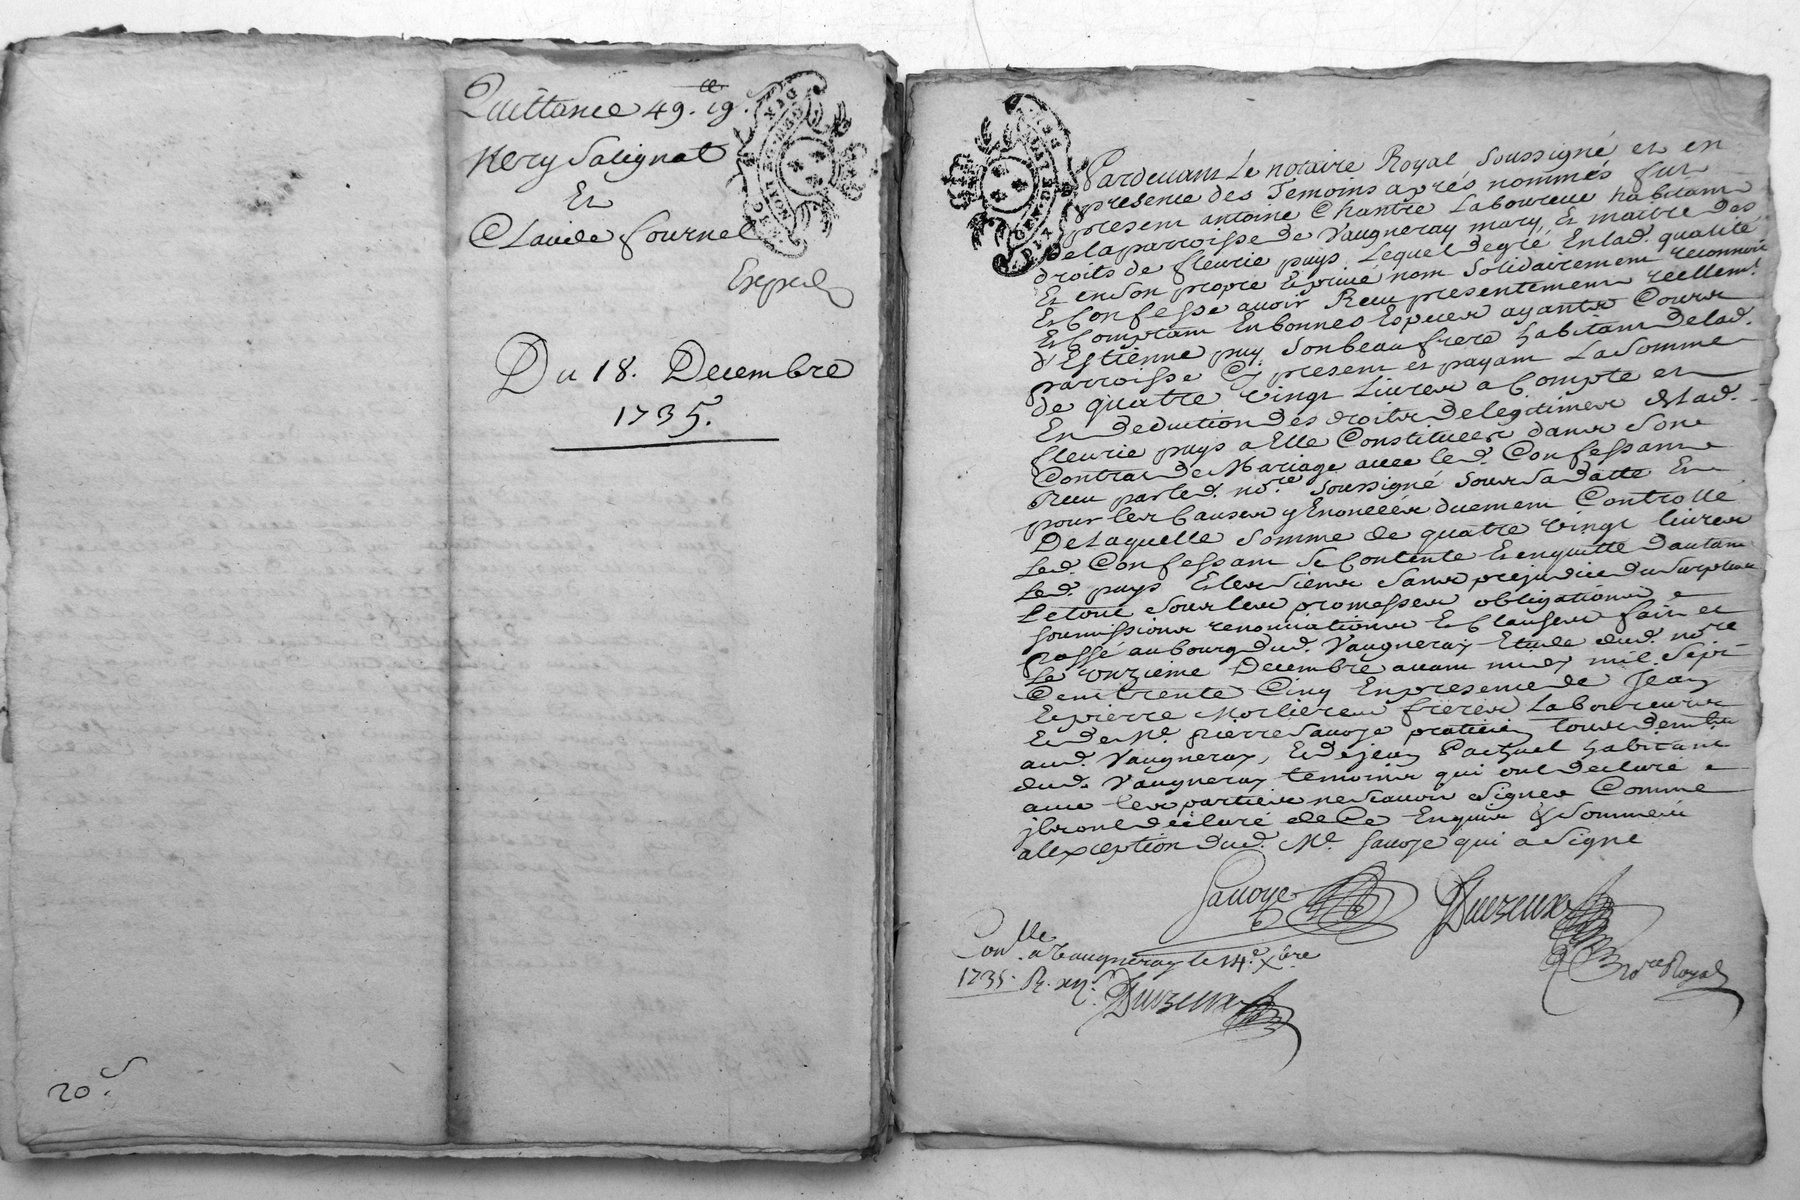 Quittance 49.lb 19.s
Nery Salignat
Et
Claude fournel
Exped
Du 18. Decembre
1735.
20.s
Pardevant Le notaire Royal Soussigné et en
presence des Temoins aprés nommés fut
present antoine Chantre Laboureur habitant
de la parroisse de Vaugneray mary, et maitre des
droits de fleurie puys Lequel de gré En lad. qualité
Et en Son propre Et privé nom Solidairement reconnoit
Et Confesse avoir Receu presentement reellemt.
Et Comptant En bonnes Especes ayants Cours
d'Estienne puy Son beau frere habitant de lad.
parroisse Cy present et payant La Somme
de quatre vingt Livres a Compte et
En deduction des droits de legitimes de lad.
fleurie puys a Elle Constituées dans Son
Contrat de Mariage avec led. Confessant
Receu par led. nore. Soussigné Sous Sa datte Et
pour les Causes y Enoncées duement Controllé
De Laquelle Somme de quatre vingt livres
Led. Confessant Se Contente Et en quitte d'autant
Led. puys Et les Siens Sans prejudice du Surplus
Le tout Sous les promesses obligations
Soumissions renonciations Et Clauses fait et
passé au bourg dud. Vaugneray Etude dud. nore
Le onzieme Decembre avant midy mil Sept
Cent trente Cinq En presence de Jean
Et pierre Morlieres freres Laboureurs
Et de Me. pierre Savoye praticien tous demts.
aud. Vaugneray, Et de jean Pachuel habitant
dud. Vaugneray temoins qui ont declaré
avec les parties ne Scavoir Signer Comme
ils ont declaré de Ce Enquis & Sommés
a l'exception dud. Me. Savoye qui a Signé
Savoye
Duvzeux
nore Royal
Conlle. a Vaugneray le 14.e Xbre
1735. R. xij.s
Duvzeux